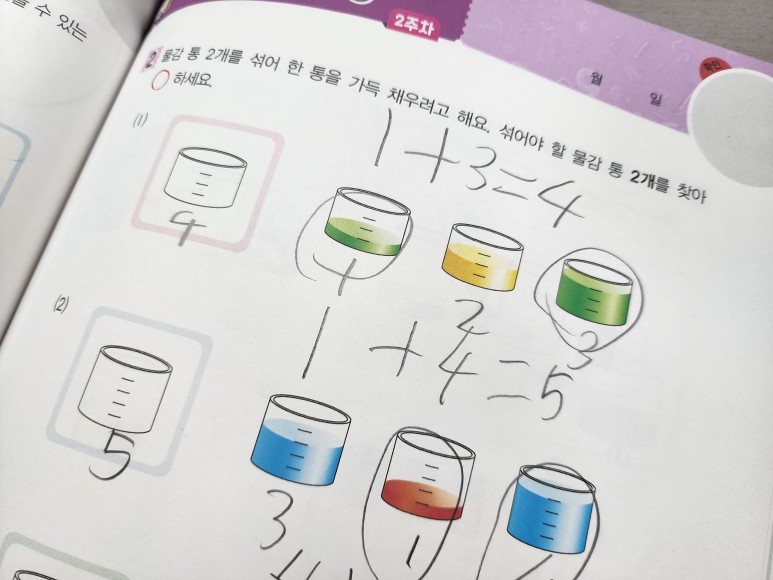 수 있는
2주차
확인
월 일
2 물감 통 2개를 섞어 한 통을 가득 채우려고 해요. 섞어야 할 물감 통 2개를 찾아
하세요.
(1)
1+3=4
4
1
2
3
(2)
1+4=5
5
3
1